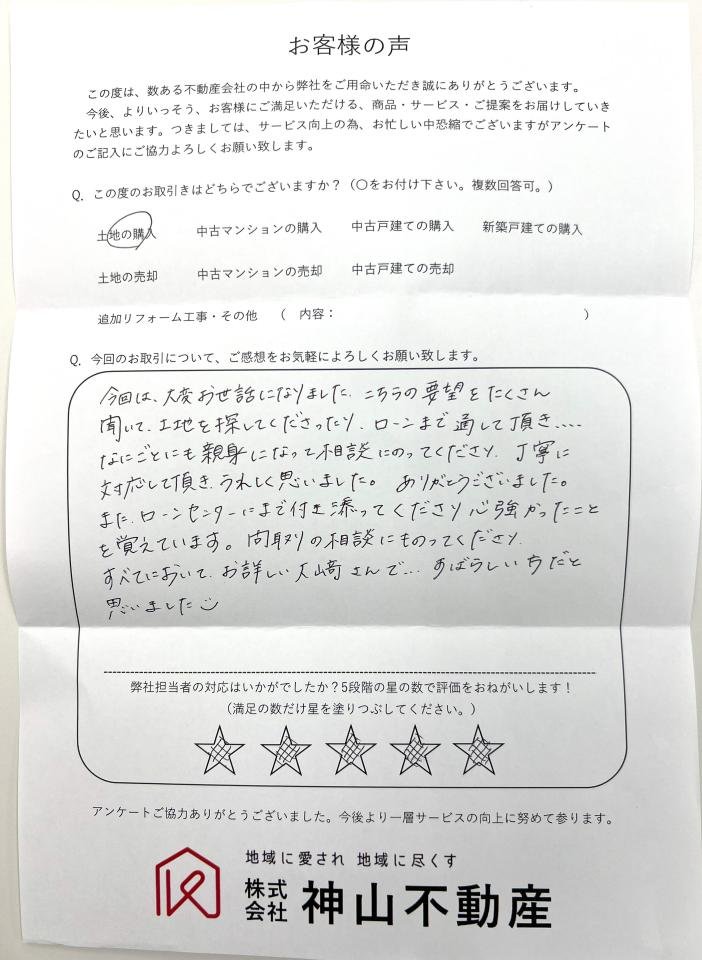 お客様の声
この度は、数ある不動産会社の中から弊社をご用命いただき誠にありがとうございます。
今後、よりいっそう、お客様にご満足いただける、商品・サービス・ご提案をお届けしていき
たいと思います。つきましては、サービス向上の為、お忙しい中恐縮でございますがアンケート
のご記入にご協力よろしくお願い致します。
Q. この度のお取引きはどちらでございますか？（〇をお付け下さい。複数回答可。）
土地の購入 中古マンションの購入 中古戸建ての購入 新築戸建ての購入
土地の売却 中古マンションの売却 中古戸建ての売却
追加リフォーム工事・その他 （ 内容： ）
Q. 今回のお取引について、ご感想をお気軽によろしくお願い致します。
今回は、大変お世話になりました。こちらの要望をたくさん
聞いて、土地を探してくださったり、ローンまで通して頂き....
なにごとにも親身になって相談にのってくださり、丁寧に
対応して頂き、うれしく思いました。ありがとうございました。
また、ローンセンターにまで付き添ってくださり心強かったこと
を覚えています。間取りの相談にものってくださり、
すべてにおいて、お詳しい大崎さんで... すばらしい方だと
思いました
弊社担当者の対応はいかがでしたか？5段階の星の数で評価をおねがいします！
（満足の数だけ星を塗りつぶしてください。）
アンケートご協力ありがとうございました。今後より一層サービスの向上に努めて参ります。
地域に愛され 地域に尽くす
株式会社 神山不動産